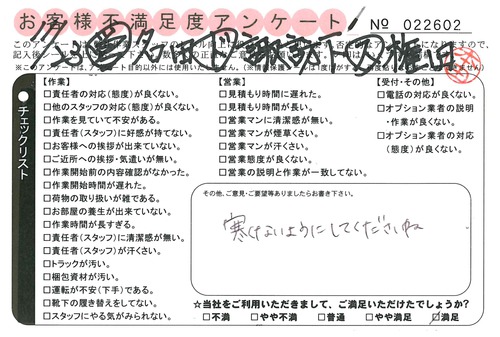 お客様不満足度アンケート
No 022602
チェックリスト
【作業】
□責任者の対応(態度)が良くない。
□他のスタッフの対応(態度)が良くない。
□作業を見ていて不安がある。
□責任者(スタッフ)に好感が持てない。
□お客様への挨拶が出来ていない。
□ご近所への挨拶・気遣いが無い。
□作業開始前の内容確認がなかった。
□作業開始時間が遅れた。
□荷物の取り扱いが雑である。
□お部屋の養生が出来ていない。
□作業時間が長すぎる。
□責任者(スタッフ)に清潔感が無い。
□責任者(スタッフ)が汗くさい。
□トラックが汚い。
□梱包資材が汚い。
□運転が不安(下手)である。
□靴下の履き替えをしてない。
□スタッフにやる気がみられない。
【営業】
□見積もり時間に遅れた。
□見積もり時間が長い。
□営業マンに清潔感が無い。
□営業マンが煙草くさい。
□営業マンが汗くさい。
□営業態度が良くない。
□営業の説明と作業が一致してない。
【受付・その他】
□電話の対応が良くない。
□オプション業者の説明
・作業が良くない。
□オプション業者の対応
(態度)が良くない。
その他、ご意見・ご要望等ありましたらお書き下さい。
寒けないようにしてくださいね
☆当社をご利用いただきまして、ご満足いただけたでしょうか?
□不満 □やや不満 □普通 □やや満足 □満足